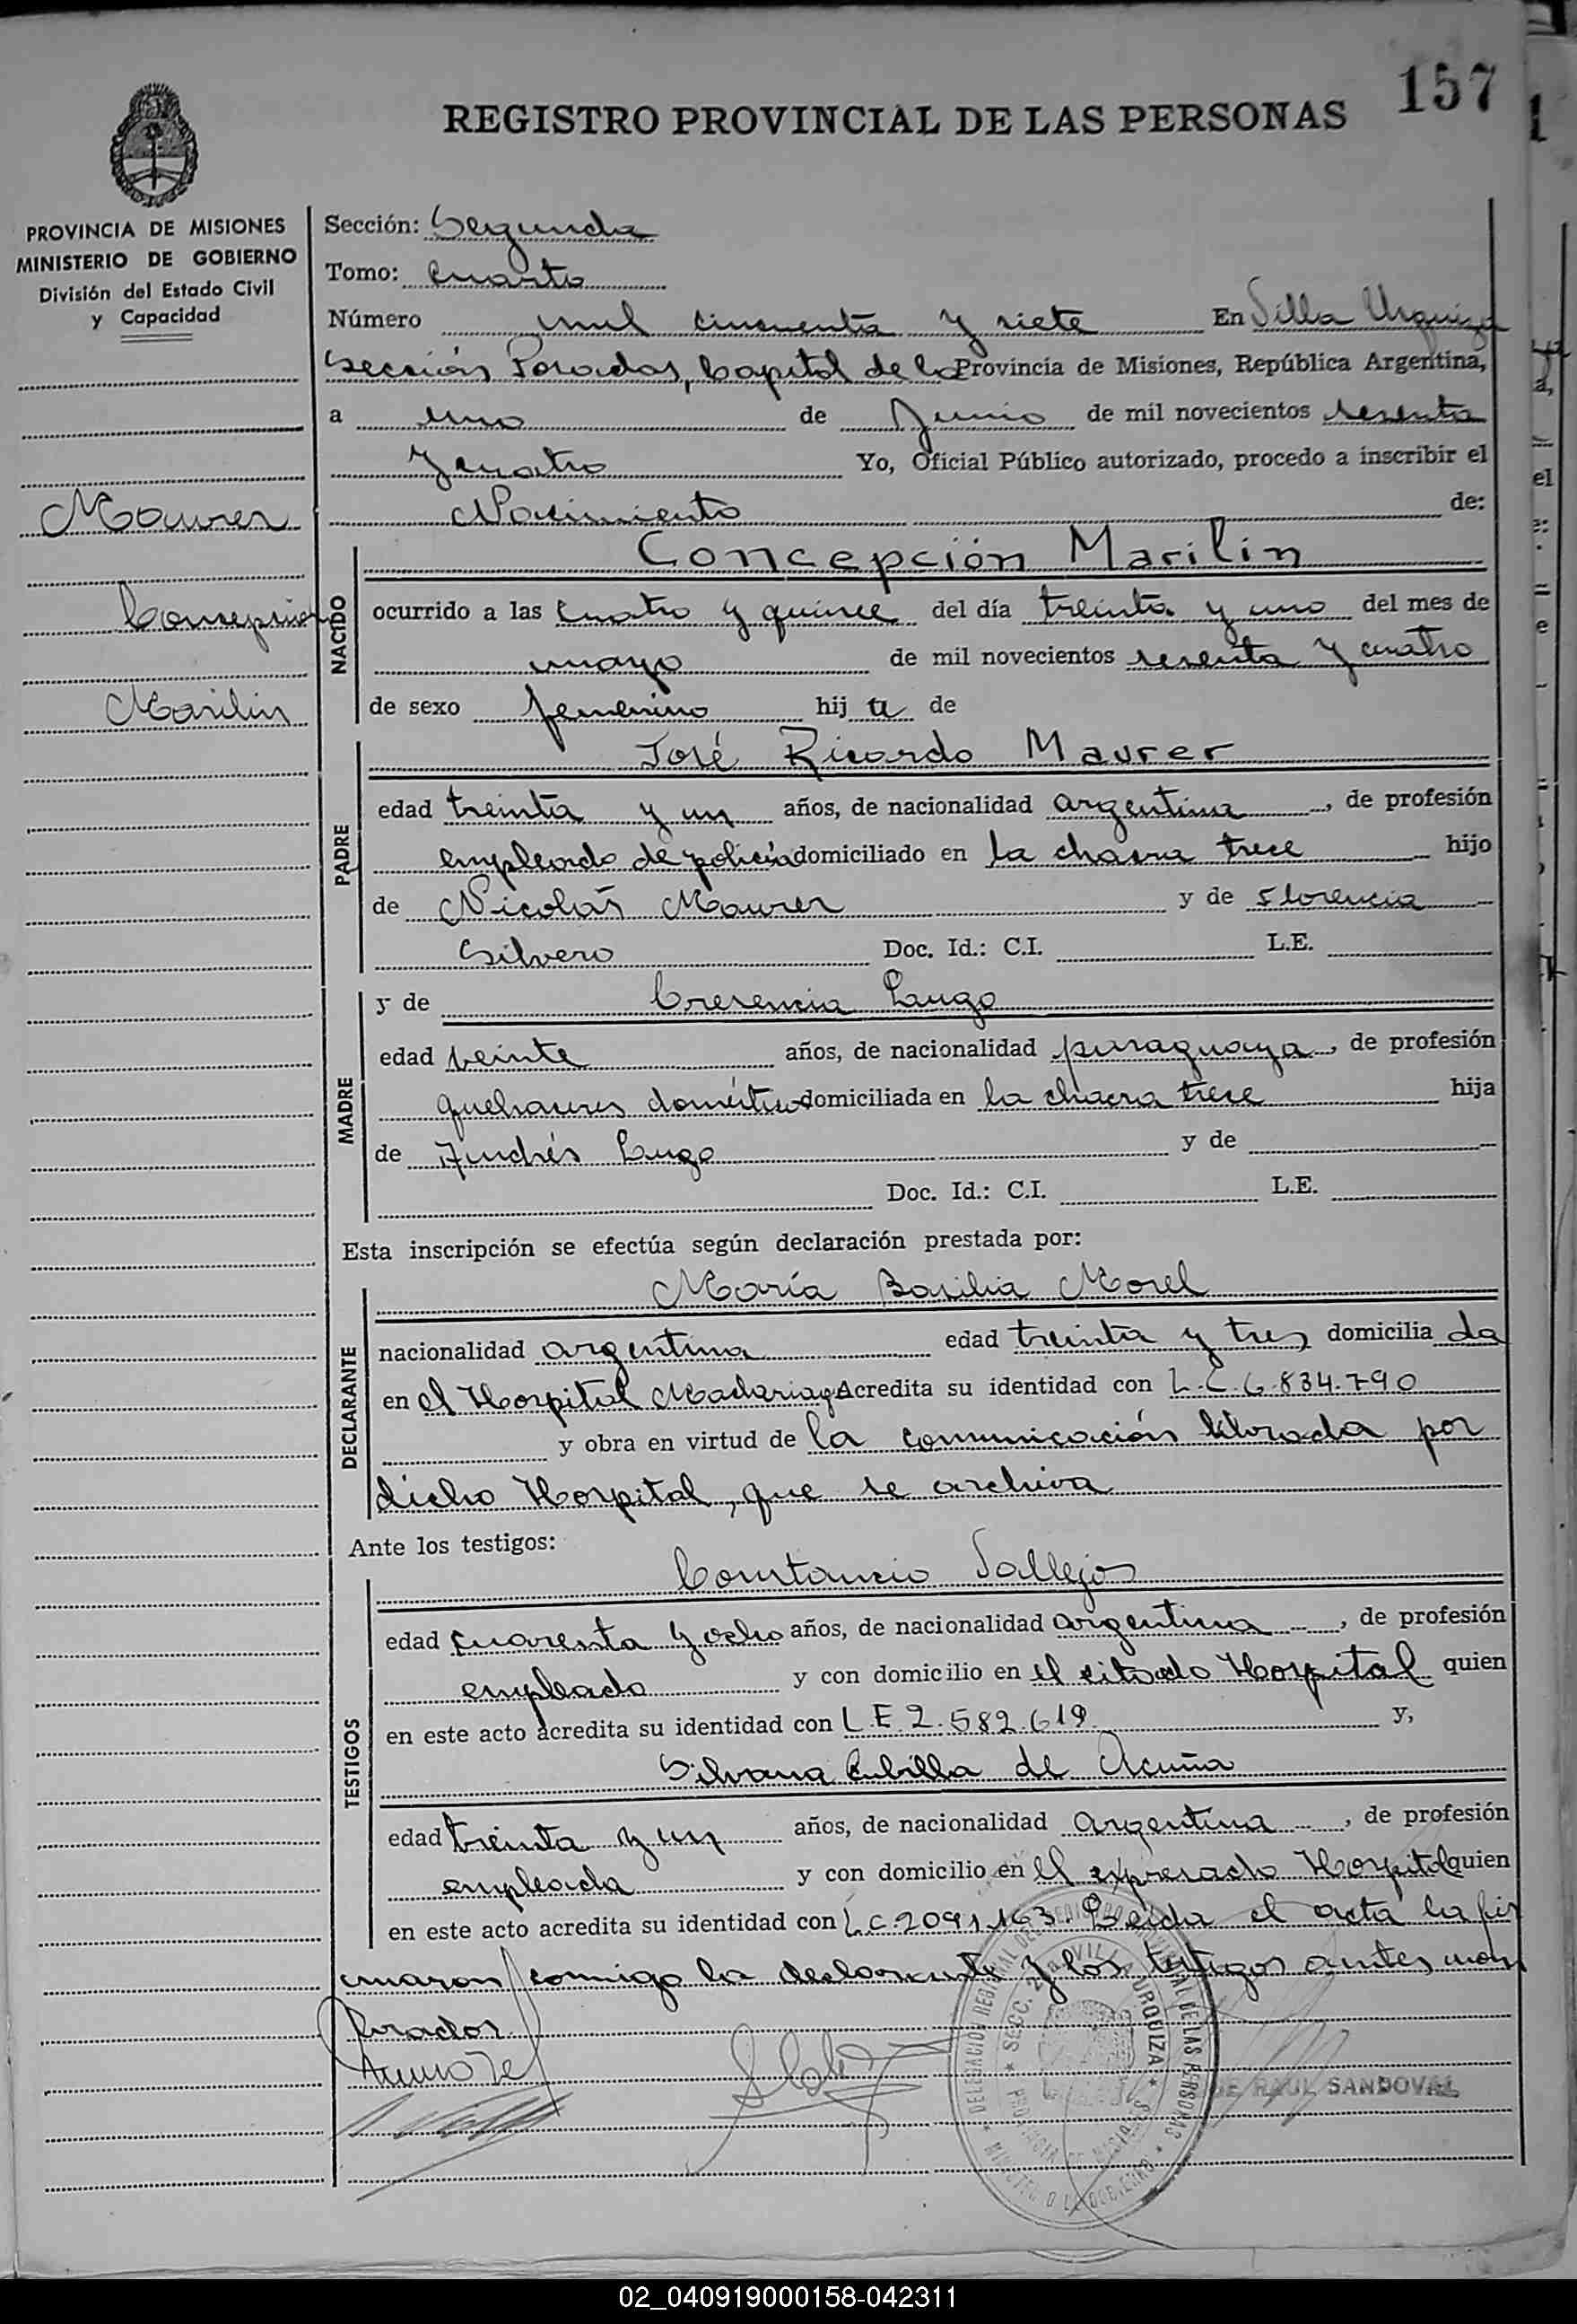 157
REGISTRO PROVINCIAL DE LAS PERSONAS
PROVINCIA DE MISIONES
MINISTERIO DE GOBIERNO
División del Estado Civil
y Capacidad
Maurer
Concepción
Marilin
Sección: Segunda
Tomo: Cuarto
Número mil cincuenta y siete En Villa Urquiza
Sección Posadas, Capital de la Provincia de Misiones, República Argentina,
a uno de Junio de mil novecientos sesenta
y cuatro Yo, Oficial Público autorizado, procedo a inscribir el
Nacimiento de:
NACIDO
Concepción Marilin
ocurrido a las cuatro y quince del día treinta y uno del mes de
mayo de mil novecientos sesenta y cuatro
de sexo femenino hij a de
PADRE
José Ricardo Maurer
edad treinta y un años, de nacionalidad argentina, de profesión
empleado de policía domiciliado en la chacra trece hijo
de Nicolás Maurer y de Florencia
Silvero Doc. Id.: C.I. L.E.
MADRE
y de Cresencia Lugo
edad veinte años, de nacionalidad paraguaya, de profesión
quehaceres domésticos domiciliada en la chacra trece hija
de Andrés Lugo y de
Doc. Id.: C.I. L.E.
Esta inscripción se efectúa según declaración prestada por:
DECLARANTE
María Basilia Morel
nacionalidad argentina edad treinta y tres domicilia da
en el Hospital Madariaga Acredita su identidad con L.C.6.834.790
y obra en virtud de la comunicación librada por
dicho Hospital, que se archiva
Ante los testigos:
TESTIGOS
Constancio Vallejos
edad cuarenta y ocho años, de nacionalidad argentina, de profesión
empleado y con domicilio en el citado Hospital quien
en este acto acredita su identidad con L.E.2.582.619 y,
Silvana Cubilla de Acuña
edad treinta y un años, de nacionalidad argentina, de profesión
empleada y con domicilio en el expresado Hospital quien
en este acto acredita su identidad con L.C.2091.163. Leída el acta la fir
maron conmigo la declarante y los testigos antes mon
brados.
SECC. 2da VILLA URQUIZA
PROVINCIA DE MISIONES
MINISTERIO DE GOBIERNO
RAUL SANDOVAL
02_040919000158-042311